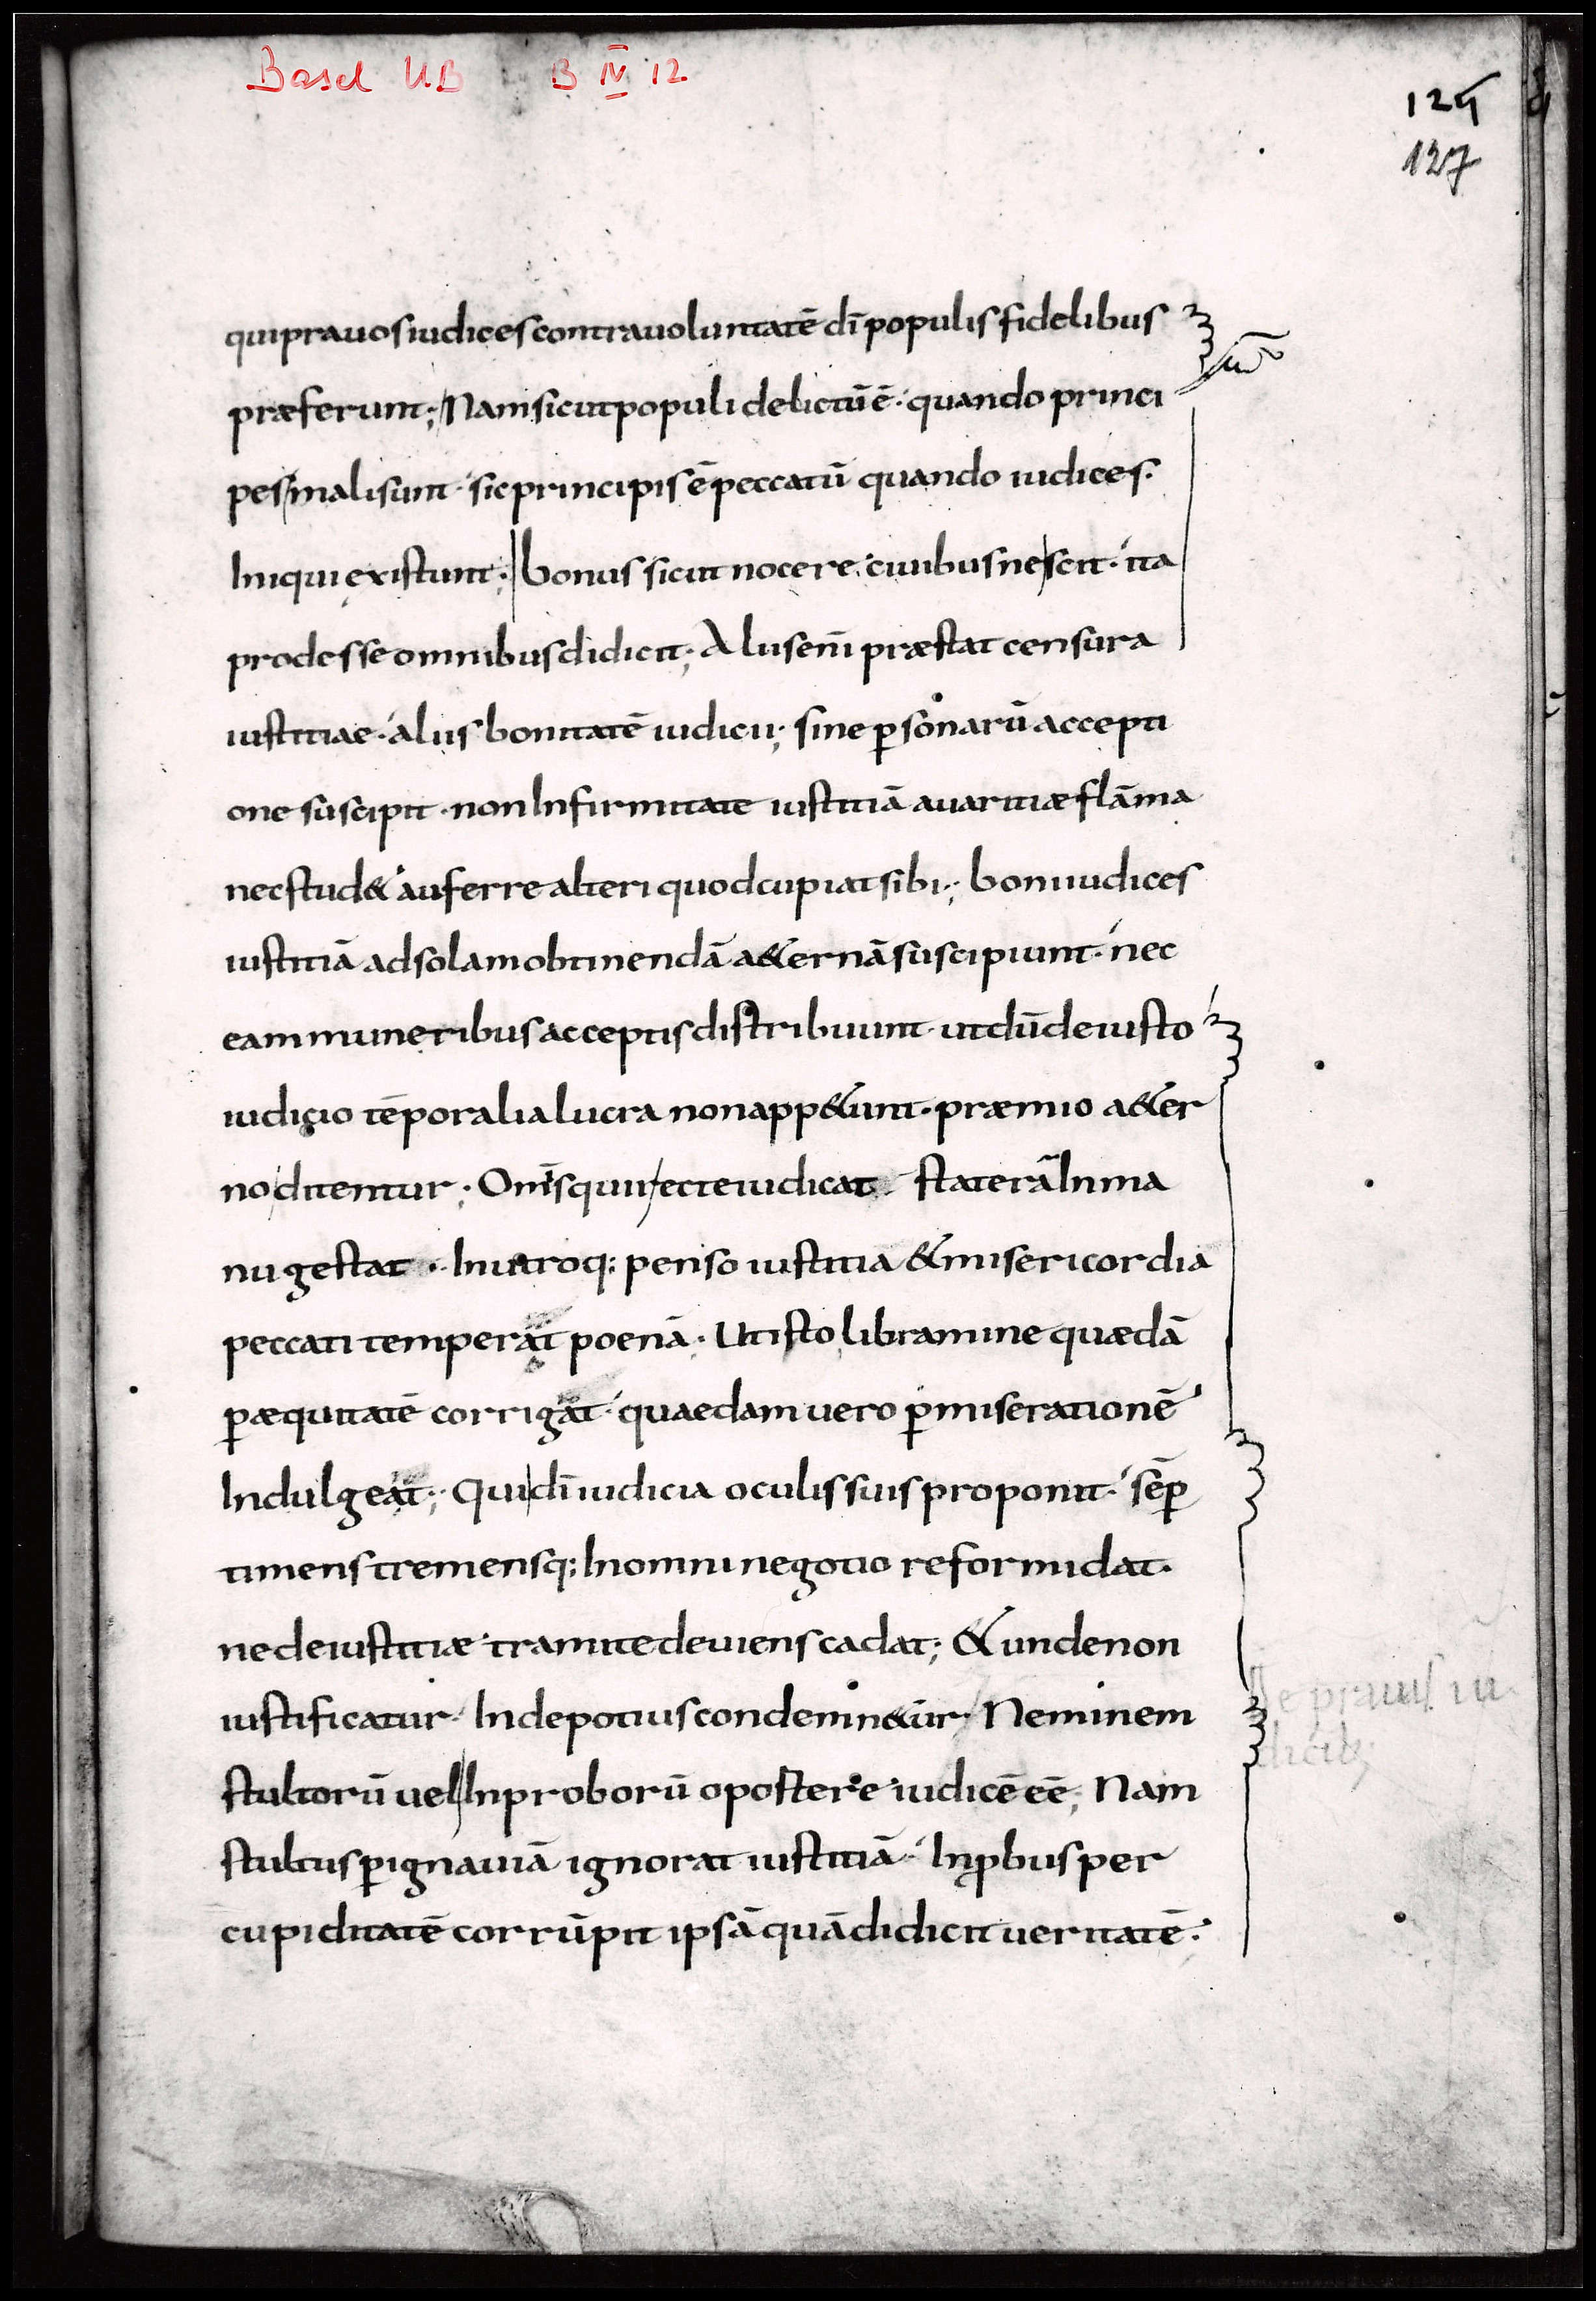 Basel UB B IV 12
125
127
qui prauos iudices contra uoluntatē dī populis fidelibus
præferunt; Nam sicut populi delictū ē· quando princi
pes mali sunt· sic principis ē peccatū quando iudices·
Iniqui existunt; bonus sicut nocere ciuibus nescit· ita
prodesse omnibus didicit; Alius enī præstat censura
iustitiae· alius bonitatē iudicii; sine p̱sonarū accepti
one suscipit· non Infirmitate iustitiā auaritiæ flāma
nec stud& auferre alteri quod cupiat sibi; boni iudices
iustitiā ad solam obtinendā a&ernā suscipiunt· nec
eam muneribus acceptis distribuunt· ut dū de iusto
iudicio tēporalia lucra non app&unt· præmio a&er
no ditentur; Om̄s qui recte iudicat staterā In ma
nu gestat· In utroq; penso iustitia & misericordia
peccati temperat poenā· Ut isto libramine quædā
p̱ æquitatē corrigat· quaedam uero p̱ miserationē
Indulgeat; Qui dī iudicia oculis suis proponit· sēp̱
timens tremensq; In omni negotio reformidat·
ne de iustitiæ tramite deuiens cadat; & unde non
iustificatur· Inde potius condemn&ur; Neminem
stultorū uel Inproborū oportere iudicē eē; Nam
stultus p̱ ignauiā ignorat iustitiā· Inp̱bus per
cupiditatē corrūpit ipsā quā didicit ueritatē·
De prauis iu
dicib;